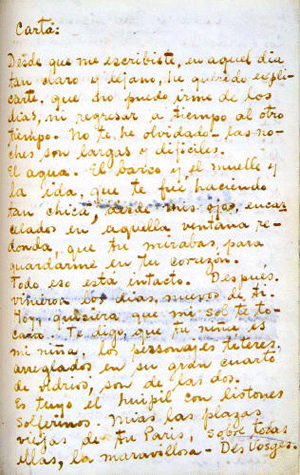 Carta:
Desde que me escribiste, en aquel día
tan claro y lejano, he querido expli
carte, que no puedo irme de los
días, ni regresar a tiempo al otro
tiempo. No te he olvidado - las no-
ches, son largas y difíciles.
El agua. El barco y el muelle y
la ida, que te fué haciendo
tan chica, desde mis ojos, encar
celados en aquella ventana re-
donda, que tu mirabas, para
guardarme en tu corazón.
Todo eso está intacto. Despues,
vinieron los días, nuevos de ti.
Hoy, quisiera que mi sol te to-
cara. Te digo, que tu niña es
mi niña, los personajes títeres,
arreglados en su gran cuarto
de vidrios, son de las dos.
Es tuyo el huipil con listones
solferinos. Mias las plazas
viejas de tu Paris, sobre todas
ellas, la maravillosa - Des Vosges.